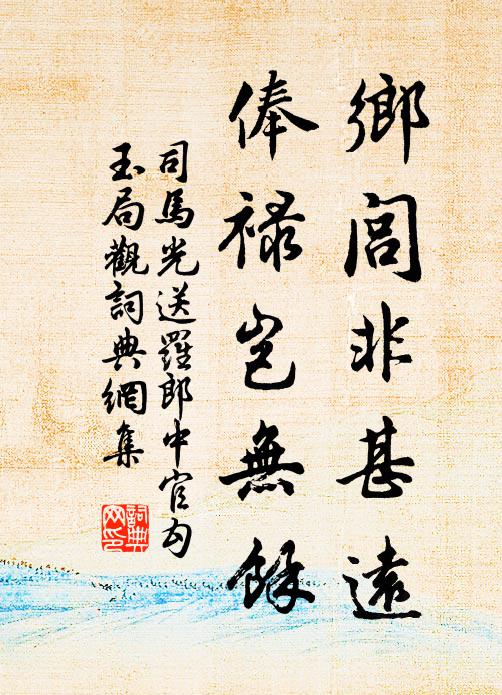 鄉閭非甚遠
俸禄岂無餘
司馬光送羅郎中官勾
玉局觀詞典網集
詞典网印